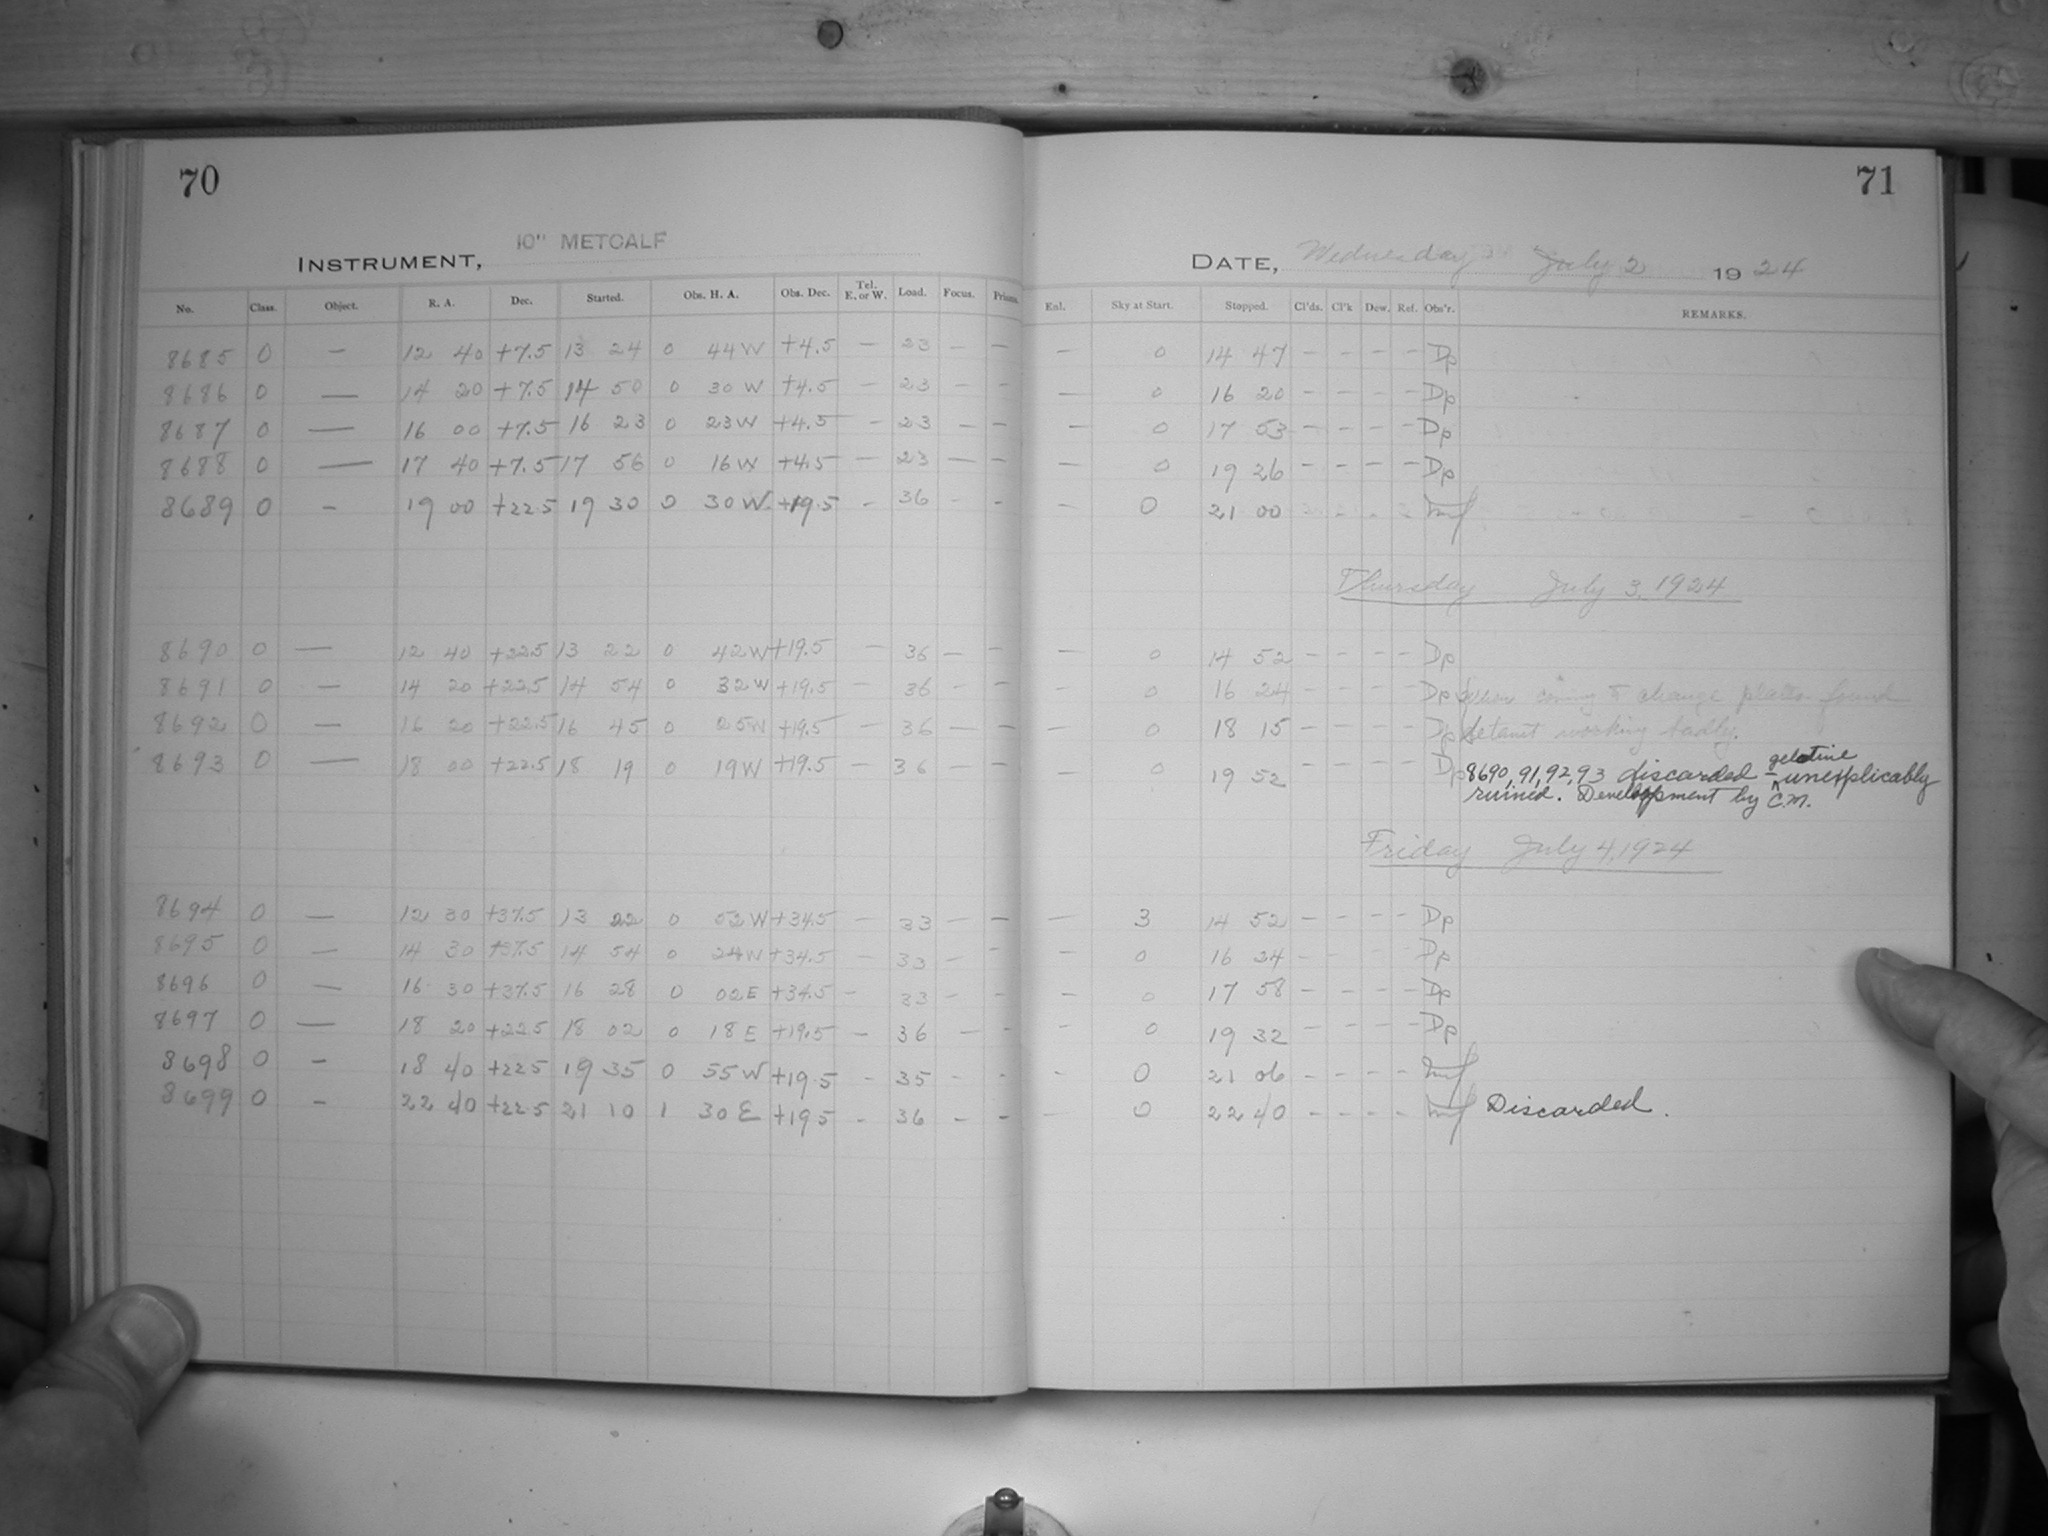 70
71
INSTRUMENT, 10" METCALF
DATE, Wednesday July 2 1924
No. Class. Object. R. A. Dec. Started. Obs. H. A. Obs. Dec. Tel. E. or W. Load. Focus. Prism. Enl. Sky at Start. Stopped. Cl'ds. Cl'k Dew. Ref. Obs'r. REMARKS.
8685 0 — 12 40 +7.5 13 24 0 44 W +4.5 — 23 — — — 0 14 47 — — — — Dp
8686 0 — 14 20 +7.5 14 50 0 30 W +4.5 — 23 — — — 0 16 20 — — — — Dp
8687 0 — 16 00 +7.5 16 23 0 23 W +4.5 — 23 — — — 0 17 53 — — — — Dp
8688 0 — 17 40 +7.5 17 56 0 16 W +4.5 — 23 — — — 0 19 26 — — — — Dp
8689 0 — 19 00 +22.5 19 30 0 30 W +19.5 — 36 — — — 0 21 00 — — — —
Thursday July 3, 1924
8690 0 — 12 40 +22.5 13 22 0 42 W +19.5 — 36 — — — 0 14 52 — — — — Dp
8691 0 — 14 20 +22.5 14 54 0 32 W +19.5 — 36 — — — 0 16 24 — — — — Dp When coming to change plates found
8692 0 — 16 20 +22.5 16 45 0 25 W +19.5 — 36 — — — 0 18 15 — — — — Dp working badly.
8693 0 — 18 00 +22.5 18 19 0 19 W +19.5 — 36 — — — 0 19 52 — — — — Dp 8690, 91, 92, 93 discarded — gelatine unexplicably
ruined. Development by C.M.
Friday July 4, 1924
8694 0 — 12 30 +37.5 13 22 0 52 W +34.5 — 33 — — — 3 14 52 — — — — Dp
8695 0 — 14 30 +37.5 14 54 0 24 W +34.5 — 33 — — — 0 16 24 — — Dp
8696 0 — 16 30 +37.5 16 28 0 02 E +34.5 — 33 — — — 0 17 58 — — — — Dp
8697 0 — 18 20 +22.5 18 02 0 18 E +19.5 — 36 — — — 0 19 32 — — — — Dp
8698 0 — 18 40 +22.5 19 35 0 55 W +19.5 — 35 — — — 0 21 06 — — — —
8699 0 — 22 40 +22.5 21 10 1 30 E +19.5 — 36 — — — 0 22 40 — — — — Discarded.